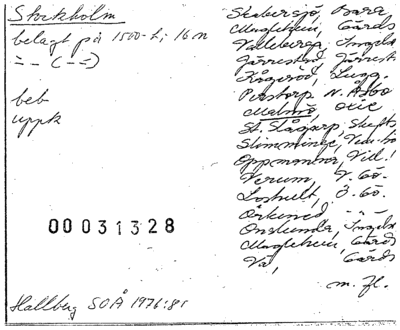 Stockholm
belagt på 1500-t; 16 n
=- (--)
beb
uppk
00031328
Hallberg SOÅ 1976:81
Skabersjö, Bara
Maglehem, Gärds
Valleberga, Ingels
Järrestad, Järrest
Kågeröd, Lugg.
Perstorp N. Åsbo
Malmö, Oxie
St. Slågarp, Skytts
Stimminge, Vem
Oppmanna, Vill.
Verum, V. Gö.
Loshult, Ö. Gö.
Örkened, -- --
Onslunda, Ingels
Maglehem, Gärds
Vä, Gärds
m. fl.